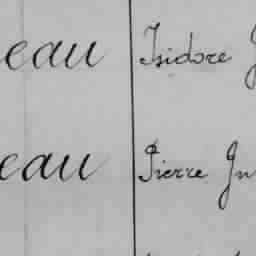 eau Isidore J
eau Pierre Ju